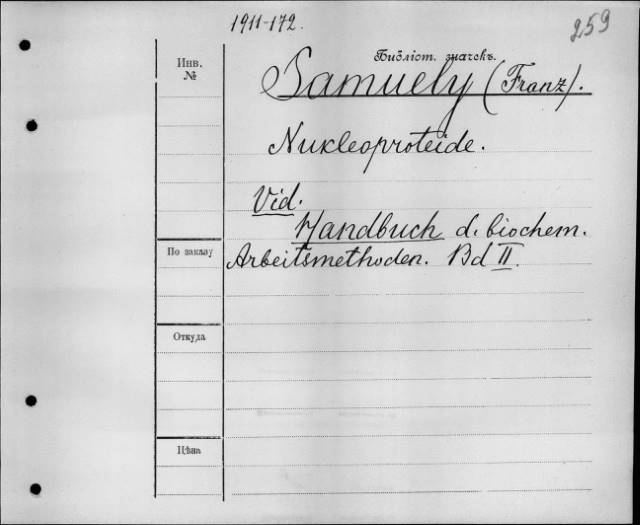 1911-172.
259
Инв.
№
Библіот. значекъ.
Samuely (Franz).
Nukleoproteide.
Vid.
Handbuch d. biochem.
По заказу
Arbeitsmethoden. Bd II.
Откуда
Цѣна